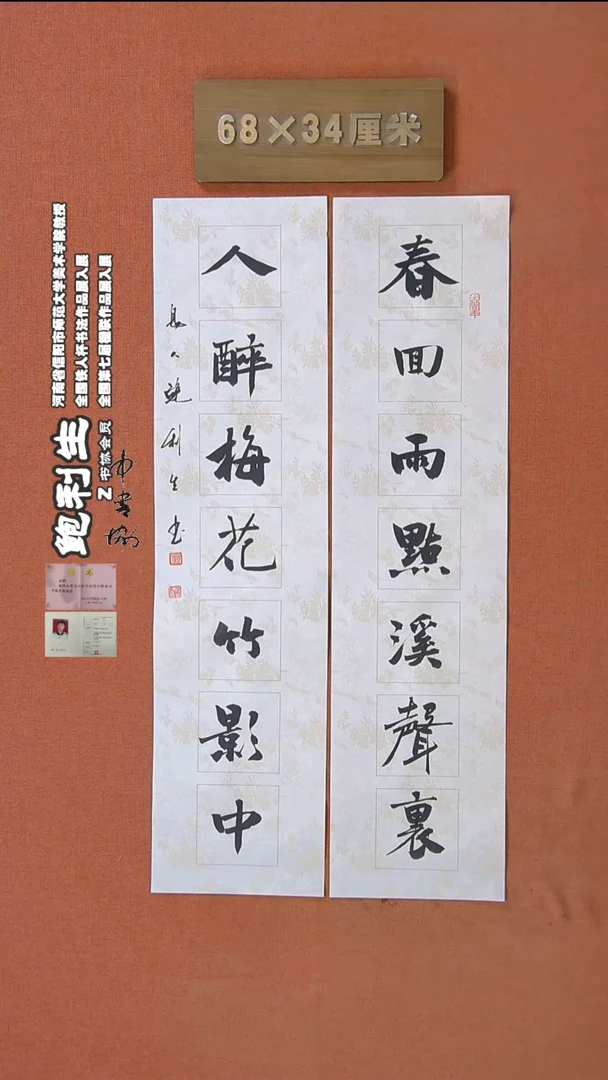 68×34厘米
春回雨點溪聲裏
人醉梅花竹影中
鮑利生书
河南省信阳市师范大学美术学院教授
全国铁人杯书法作品展入展
全国第七届楹联作品展入展
鲍利生
书协会员